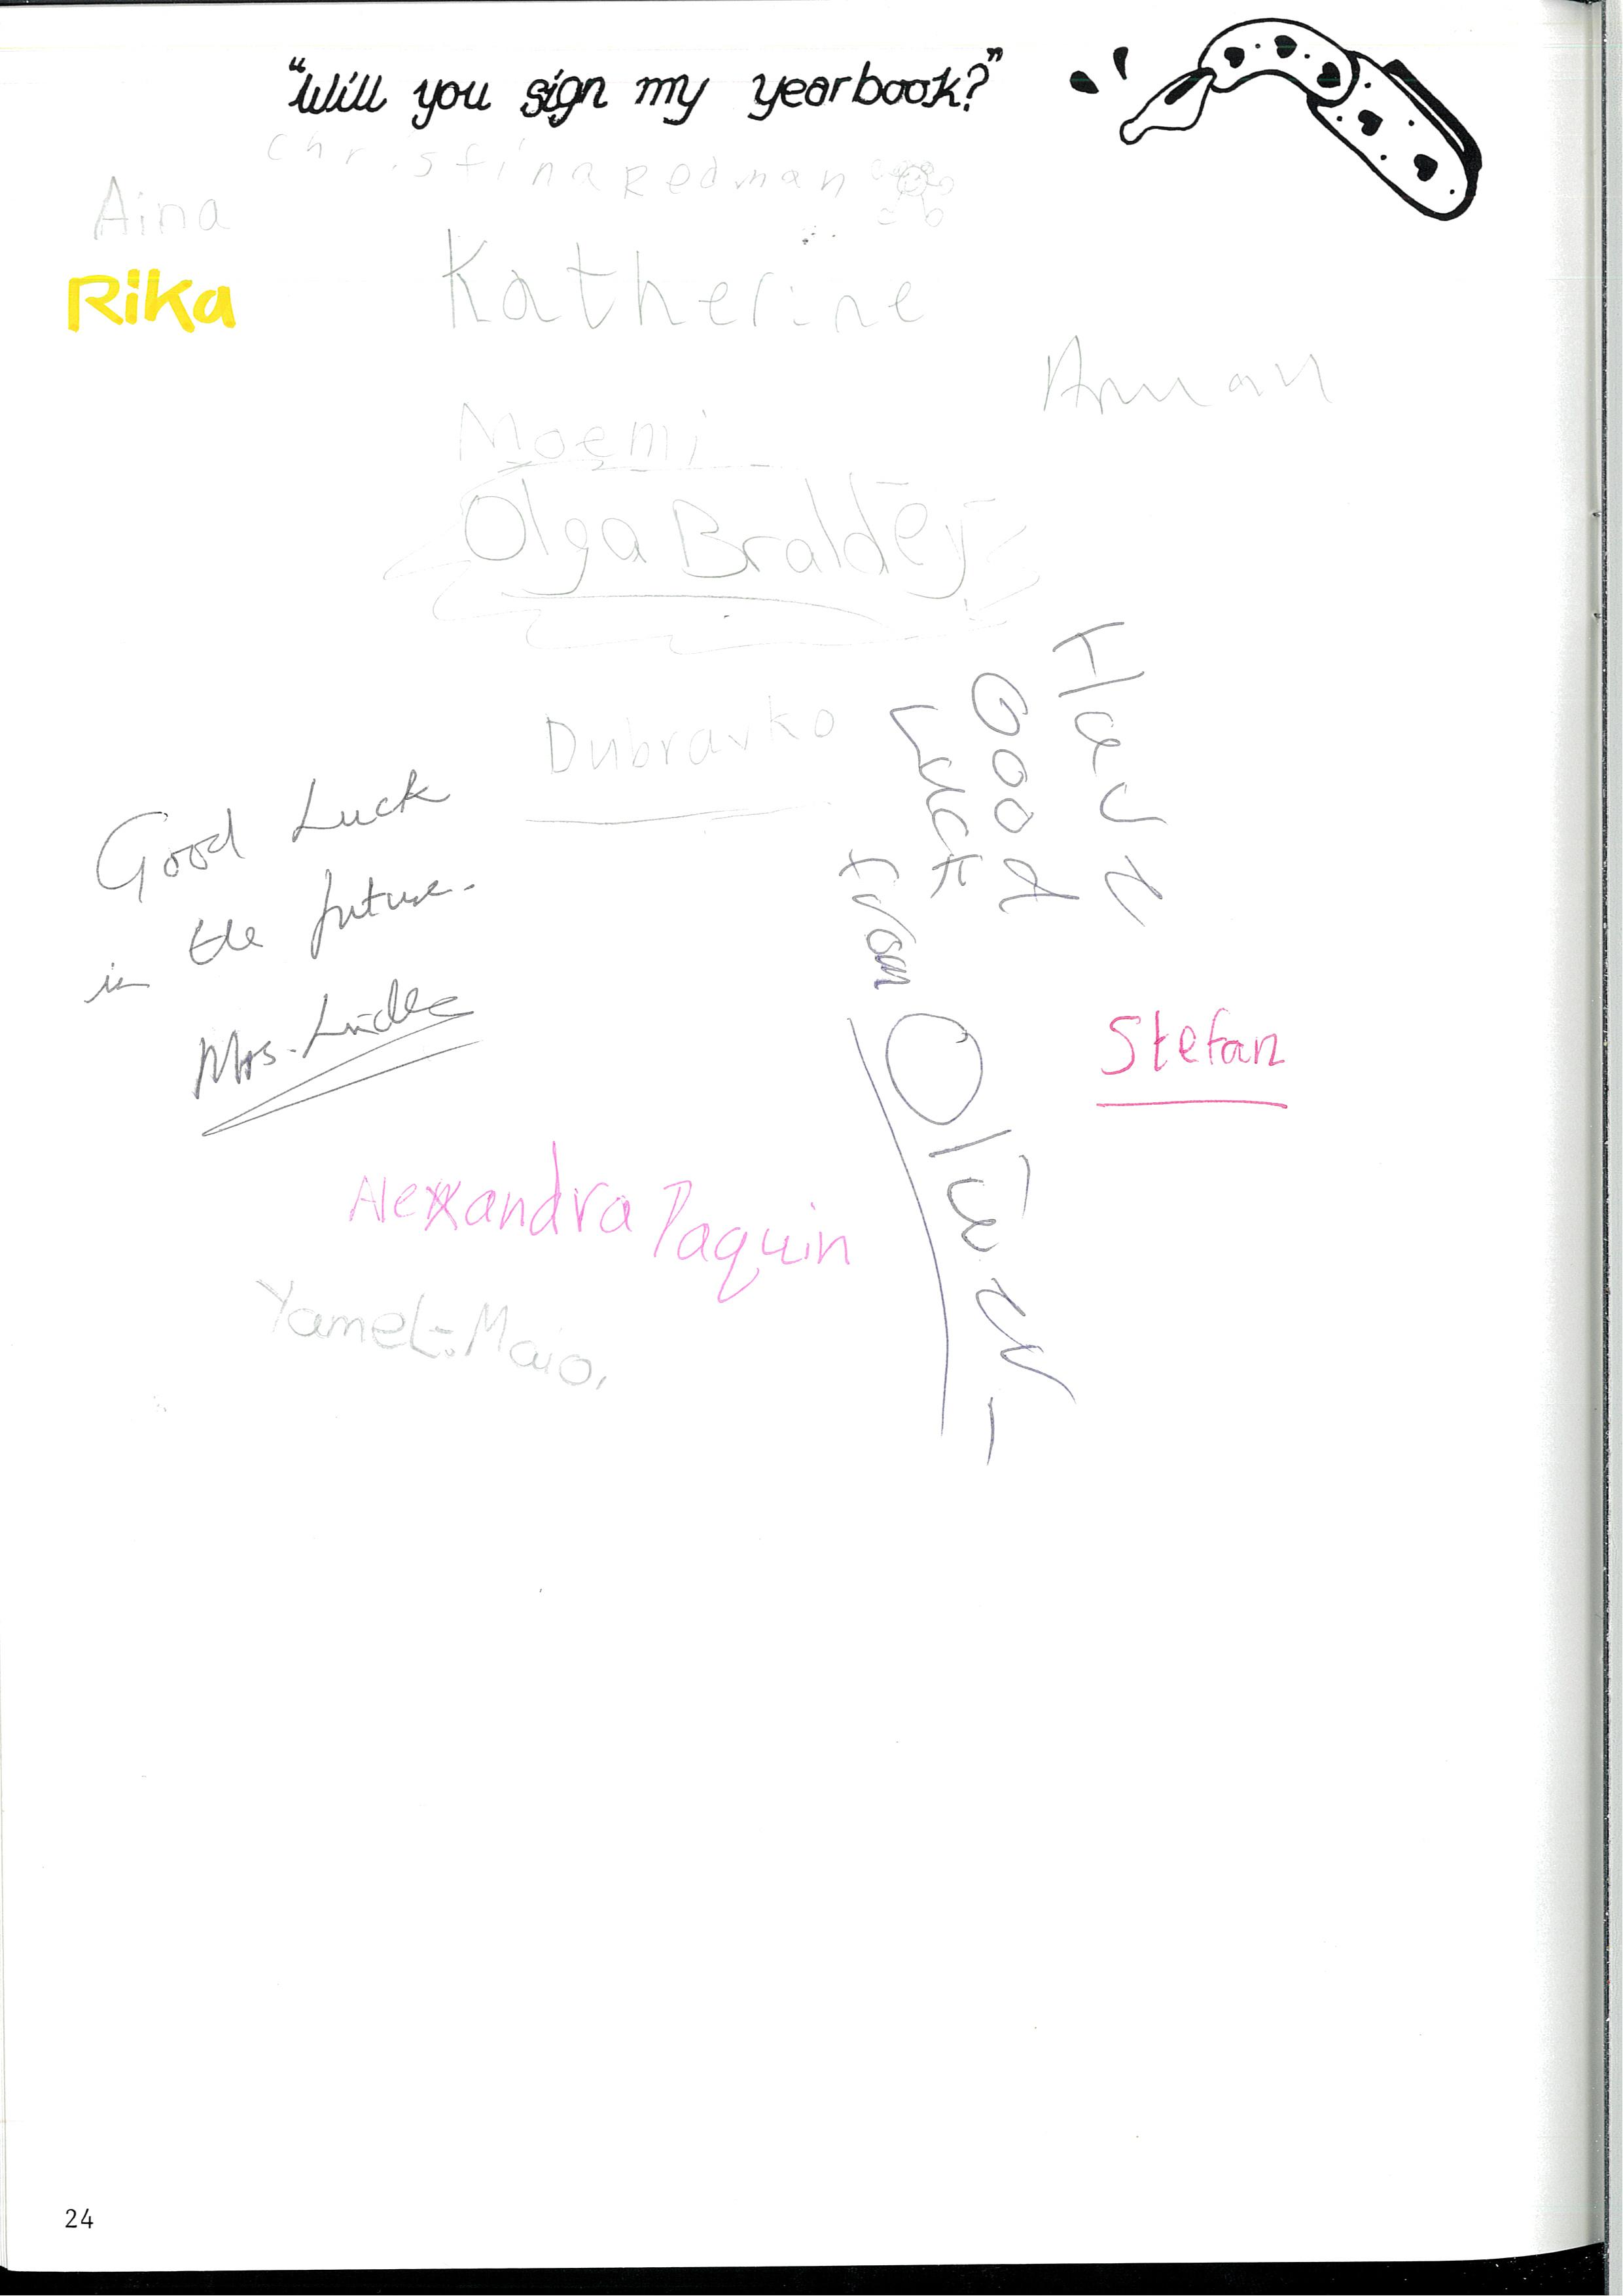 "Will you sign my yearbook?"
christina Redman
Aina
Rika
Katherine
Arman
Moemi
Olga Braldey
Dubravko
Have
Good
Luck
from
Oliver
Good Luck
in the future.
Mrs.
Stefan
Alexandra Paquin
Yamel-Maio,
24